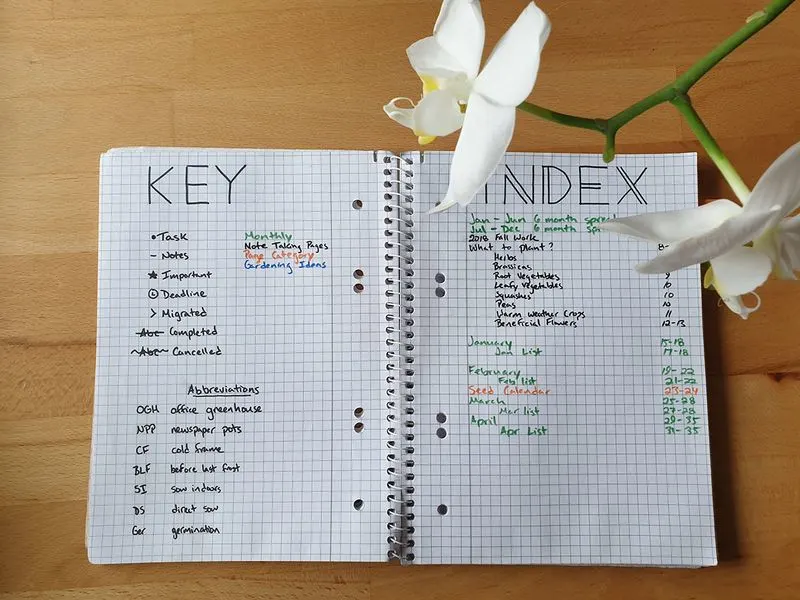 KEY
• Task
- Notes
★ Important
Deadline
> Migrated
Abc Completed
Abc Cancelled
Monthly
Note Taking Pages
Page Category
Gardening Ideas
Abbreviations
OGH office greenhouse
NPP newspaper pots
CF cold frame
BLF before last fast
SI sow indoors
DS direct sow
Ger germination
INDEX
Jan - Jun 6 month spread
Jul - Dec 6 month
2018 Fall Work
What to plant? 8-
Herbs
Brassicas
Root Vegetables 9
Leafy Vegetables 10
Squashes 10
Peas
Warm Weather Crops 11
Beneficial Flowers 12-13
January 15-18
Jan List 17-18
February 19-22
Feb list 21-22
Seed Calendar 23-24
March 25-28
Mar list 27-28
April 29-35
Apr List 31-35